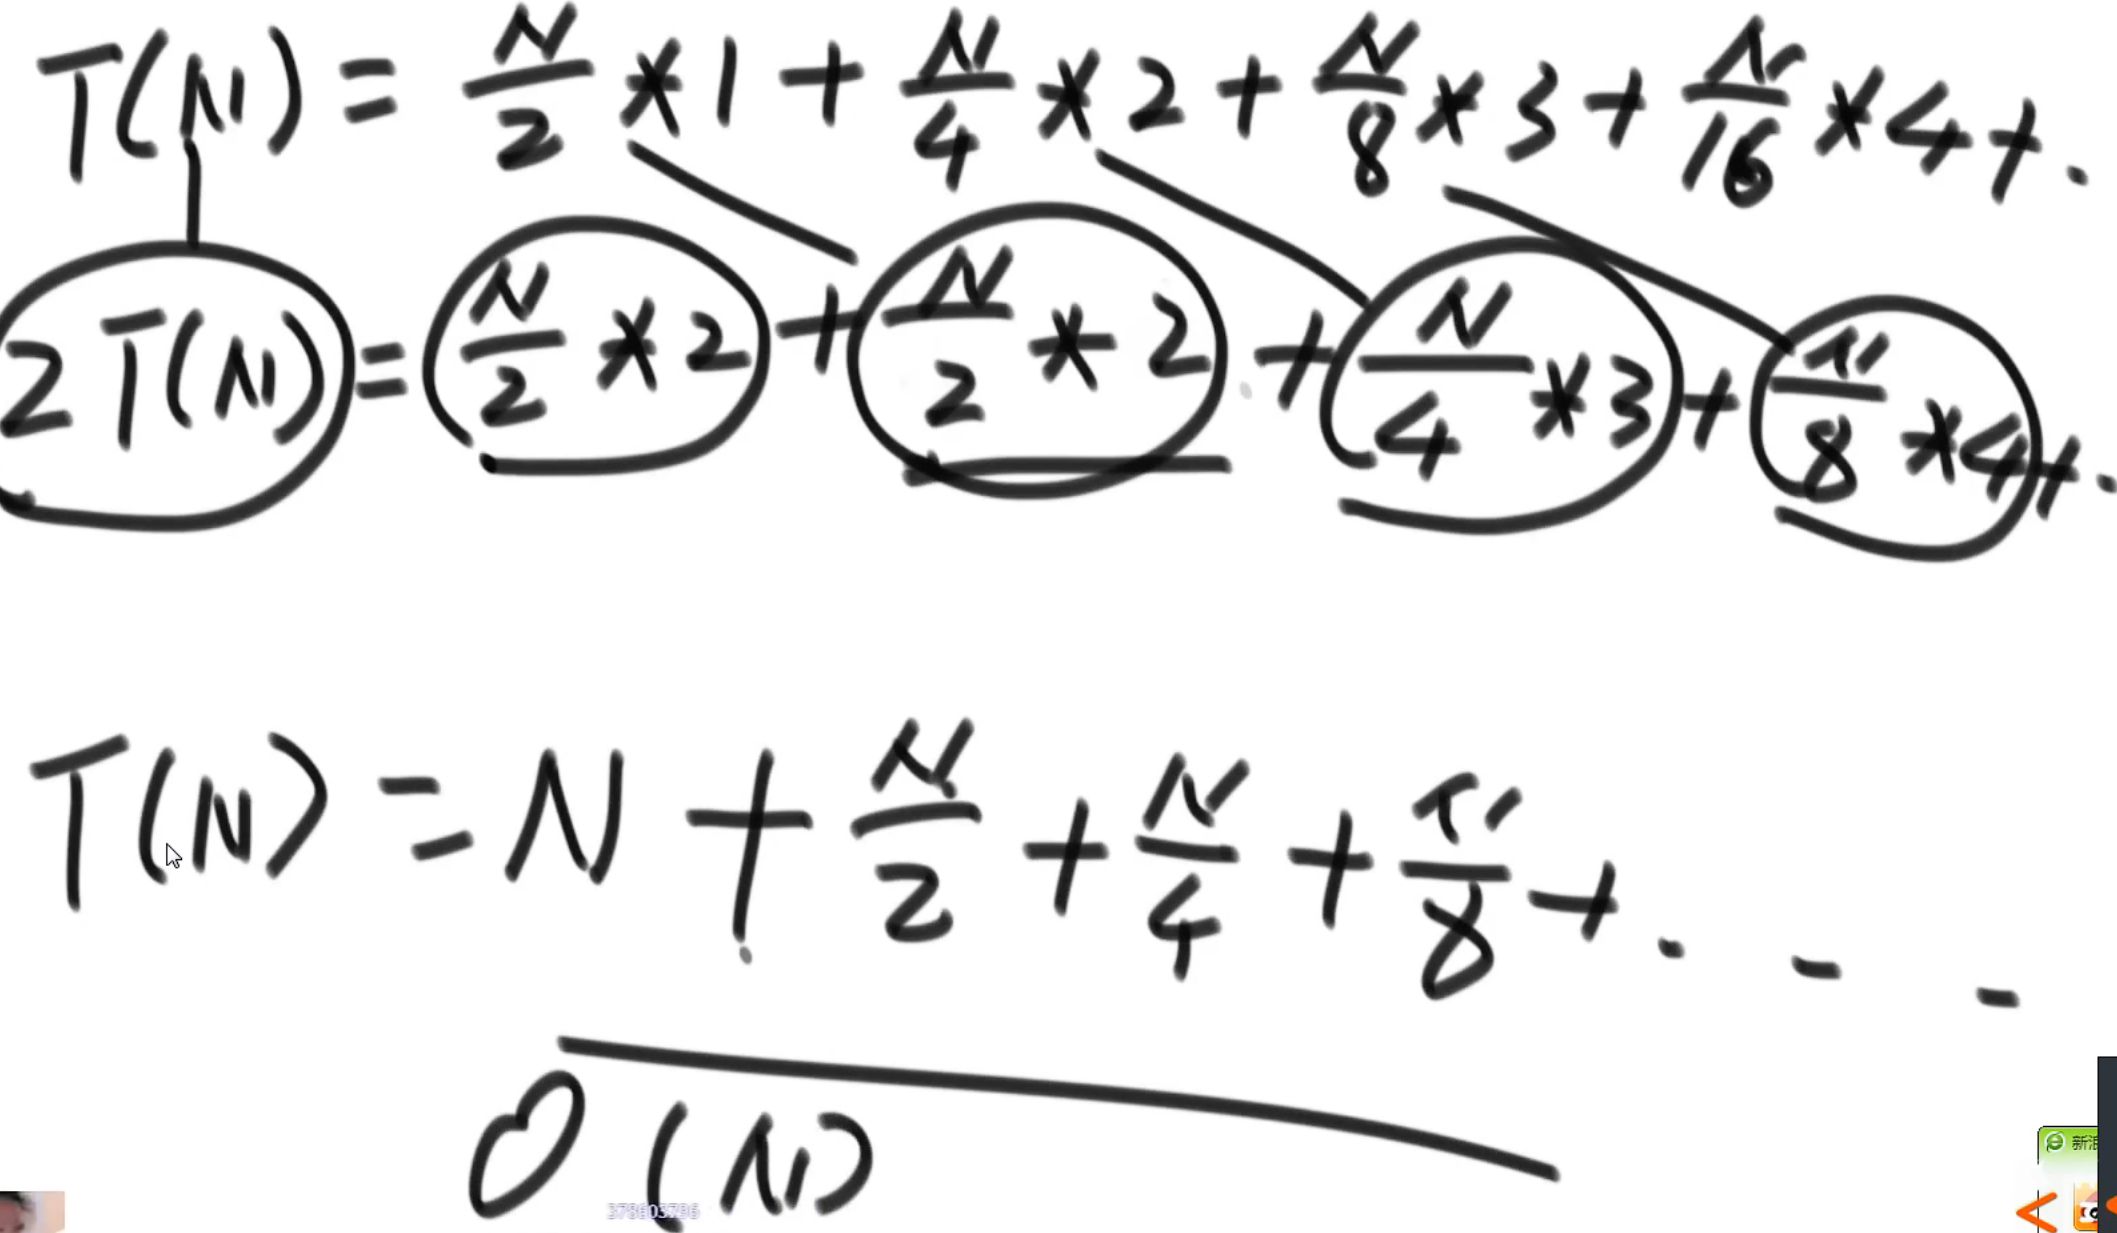 T(N) = N/2 * 1 + N/4 * 2 + N/8 * 3 + N/16 * 4 + .
2T(N) = N/2 * 2 + N/2 * 2 + N/4 * 3 + N/8 * 4 + .
T(N) = N + N/2 + N/4 + N/8 + . - -
O(N)
378603796
新浪